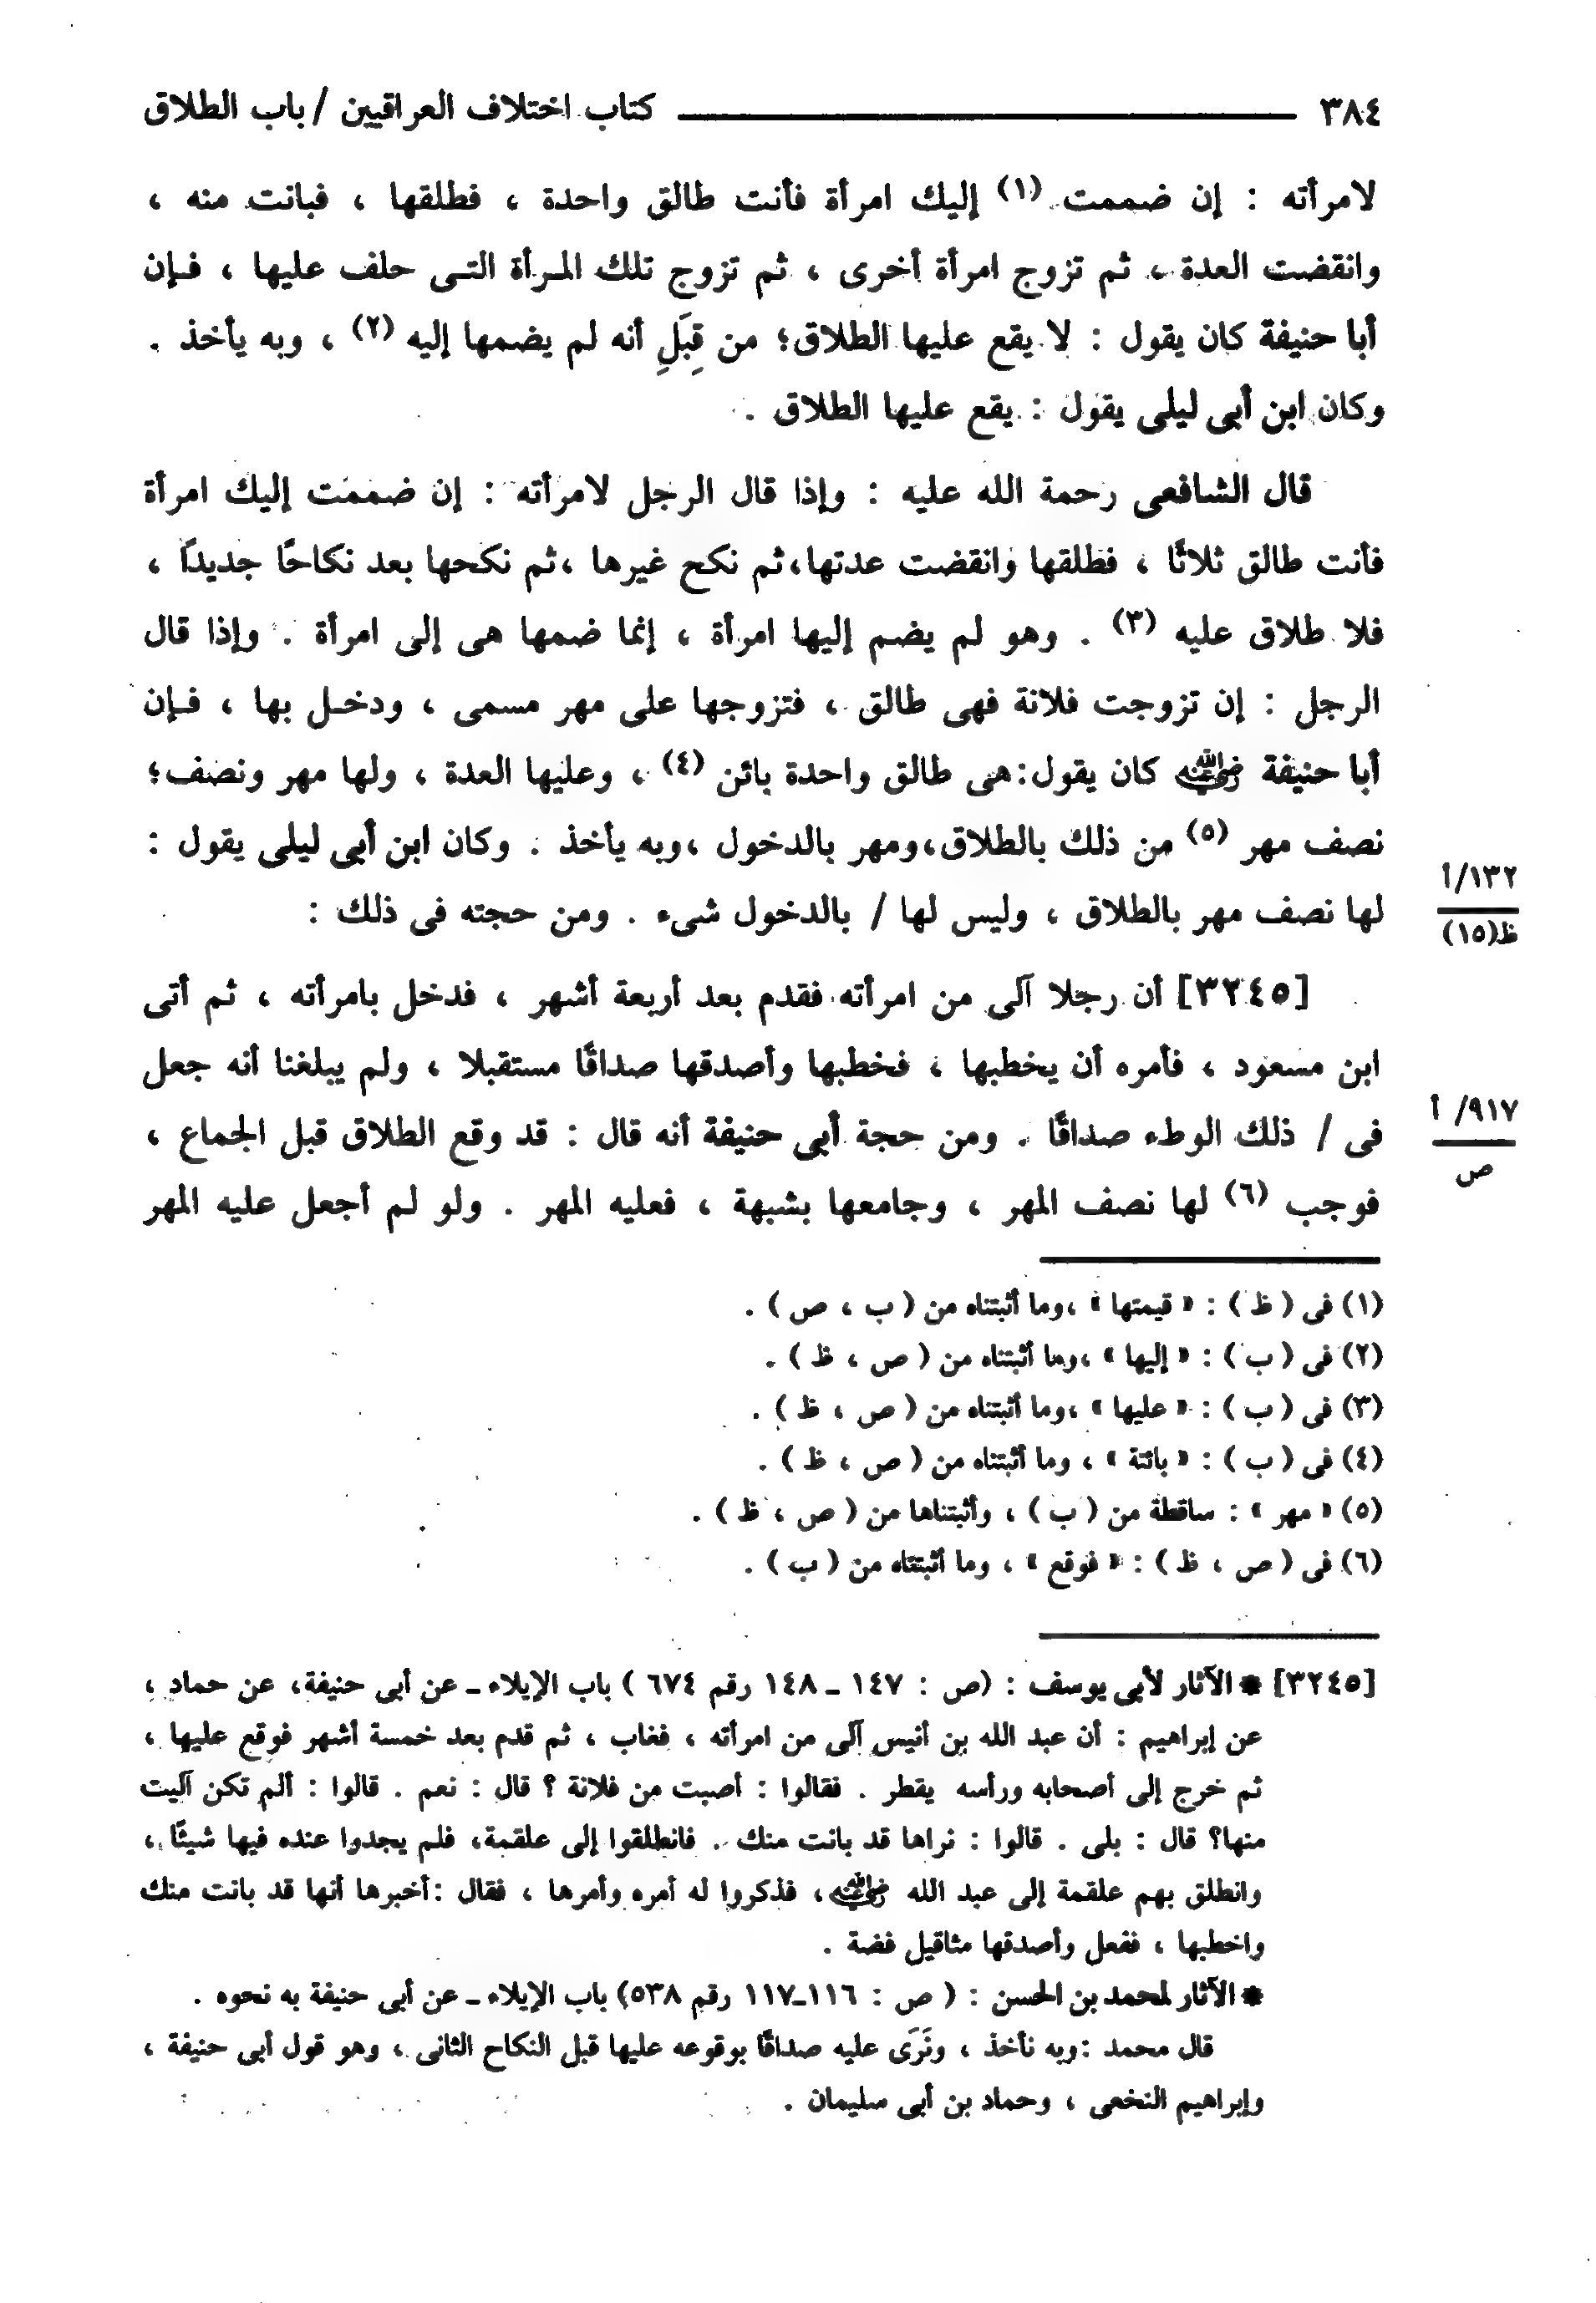 ٣٨٤ ــــــــــ كتاب اختلاف العراقيين / باب الطلاق
لامرأته : إن ضممت (١) إليك امرأة فأنت طالق واحدة ، فطلقها ، فبانت منه ،
وانقضت العدة ، ثم تزوج امرأة أخرى ، ثم تزوج تلك المرأة التى حلف عليها ، فإن
أبا حنيفة كان يقول : لا يقع عليها الطلاق؛ من قِبَلِ أنه لم يضمها إليه (٢) ، وبه يأخذ .
وكان ابن أبى ليلى يقول : يقع عليها الطلاق .
قال الشافعى رحمة الله عليه : وإذا قال الرجل لامرأته : إن ضممت إليك امرأة
فأنت طالق ثلاثًا ، فطلقها وانقضت عدتها،ثم نكح غيرها ،ثم نكحها بعد نكاحًا جديدًا ،
فلا طلاق عليه (٣) . وهو لم يضم إليها امرأة ، إنما ضمها هى إلى امرأة . وإذا قال
الرجل : إن تزوجت فلانة فهى طالق ، فتزوجها على مهر مسمى ، ودخل بها ، فإن
أبا حنيفة رضي الله عنه كان يقول:هى طالق واحدة بائن (٤) ، وعليها العدة ، ولها مهر ونصف؛
نصف مهر (٥) من ذلك بالطلاق،ومهر بالدخول ،وبه يأخذ . وكان ابن أبى ليلى يقول :
١٣٢/أ
لها نصف مهر بالطلاق ، وليس لها / بالدخول شىء . ومن حجته فى ذلك :
ظ(١٥)
[٣٢٤٥] أن رجلا آلى من امرأته فقدم بعد أربعة أشهر ، فدخل بامرأته ، ثم أتى
ابن مسعود ، فأمره أن يخطبها ، فخطبها وأصدقها صداقًا مستقبلا ، ولم يبلغنا أنه جعل
٩١٧/ أ
فى / ذلك الوطء صداقًا . ومن حجة أبى حنيفة أنه قال : قد وقع الطلاق قبل الجماع ،
ص
فوجب (٦) لها نصف المهر ، وجامعها بشبهة ، فعليه المهر . ولو لم أجعل عليه المهر
(١) فى ( ظ ) : « قيمتها » ،وما أثبتناه من ( ب ، ص ) .
(٢) فى ( ب ) : « إليها » ،وما أثبتناه من ( ص ، ظ ) .
(٣) فى ( ب ) : « عليها » ،وما أثبتناه من ( ص ، ظ ) .
(٤) فى ( ب ) : « بائنة » ، وما أثبتناه من ( ص ، ظ ) .
(٥) « مهر » : ساقطة من ( ب ) ، وأثبتناها من ( ص ، ظ ) .
(٦) فى ( ص ، ظ ) : « فوقع » ، وما أثبتناه من ( ب ) .
[٣٢٤٥] * الآثار لأبى يوسف : (ص : ١٤٧ ـ ١٤٨ رقم ٦٧٤ ) باب الإيلاء ـ عن أبى حنيفة، عن حماد ،
عن إبراهيم : أن عبد الله بن أنيس آلى من امرأته ، فغاب ، ثم قدم بعد خمسة أشهر فوقع عليها ،
ثم خرج إلى أصحابه ورأسه يقطر . فقالوا : أصبت من فلانة ؟ قال : نعم . قالوا : ألم تكن آليت
منها؟ قال : بلى . قالوا : نراها قد بانت منك . فانطلقوا إلى علقمة، فلم يجدوا عنده فيها شيئًا ،
وانطلق بهم علقمة إلى عبد الله رضي الله عنه، فذكروا له أمره وأمرها ، فقال :أخبرها أنها قد بانت منك
واخطبها ، ففعل وأصدقها مثاقيل فضة .
* الآثار لمحمد بن الحسن : ( ص : ١١٦ـ١١٧ رقم ٥٣٨) باب الإيلاء ـ عن أبى حنيفة به نحوه .
قال محمد :وبه نأخذ ، ونَرَى عليه صداقًا بوقوعه عليها قبل النكاح الثانى ، وهو قول أبى حنيفة ،
وإبراهيم النخعى ، وحماد بن أبى سليمان .